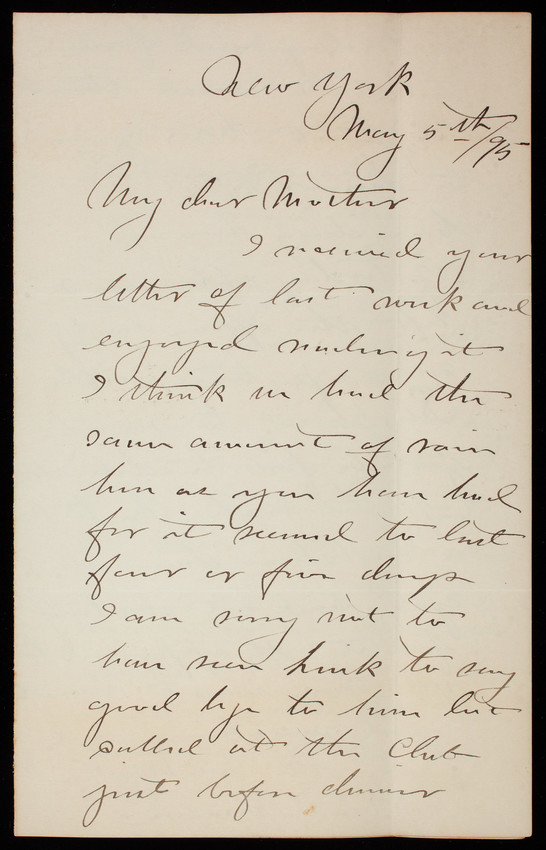 New York
May 5th/95
My dear Mother
I received your
letter of last week and
enjoyed reading it
I think we had the
same amount of rain
here as you have had
for it seemed to last
four or five days
I am sorry not to
have seen to say
good bye to him he
called at the Club
just before dinner